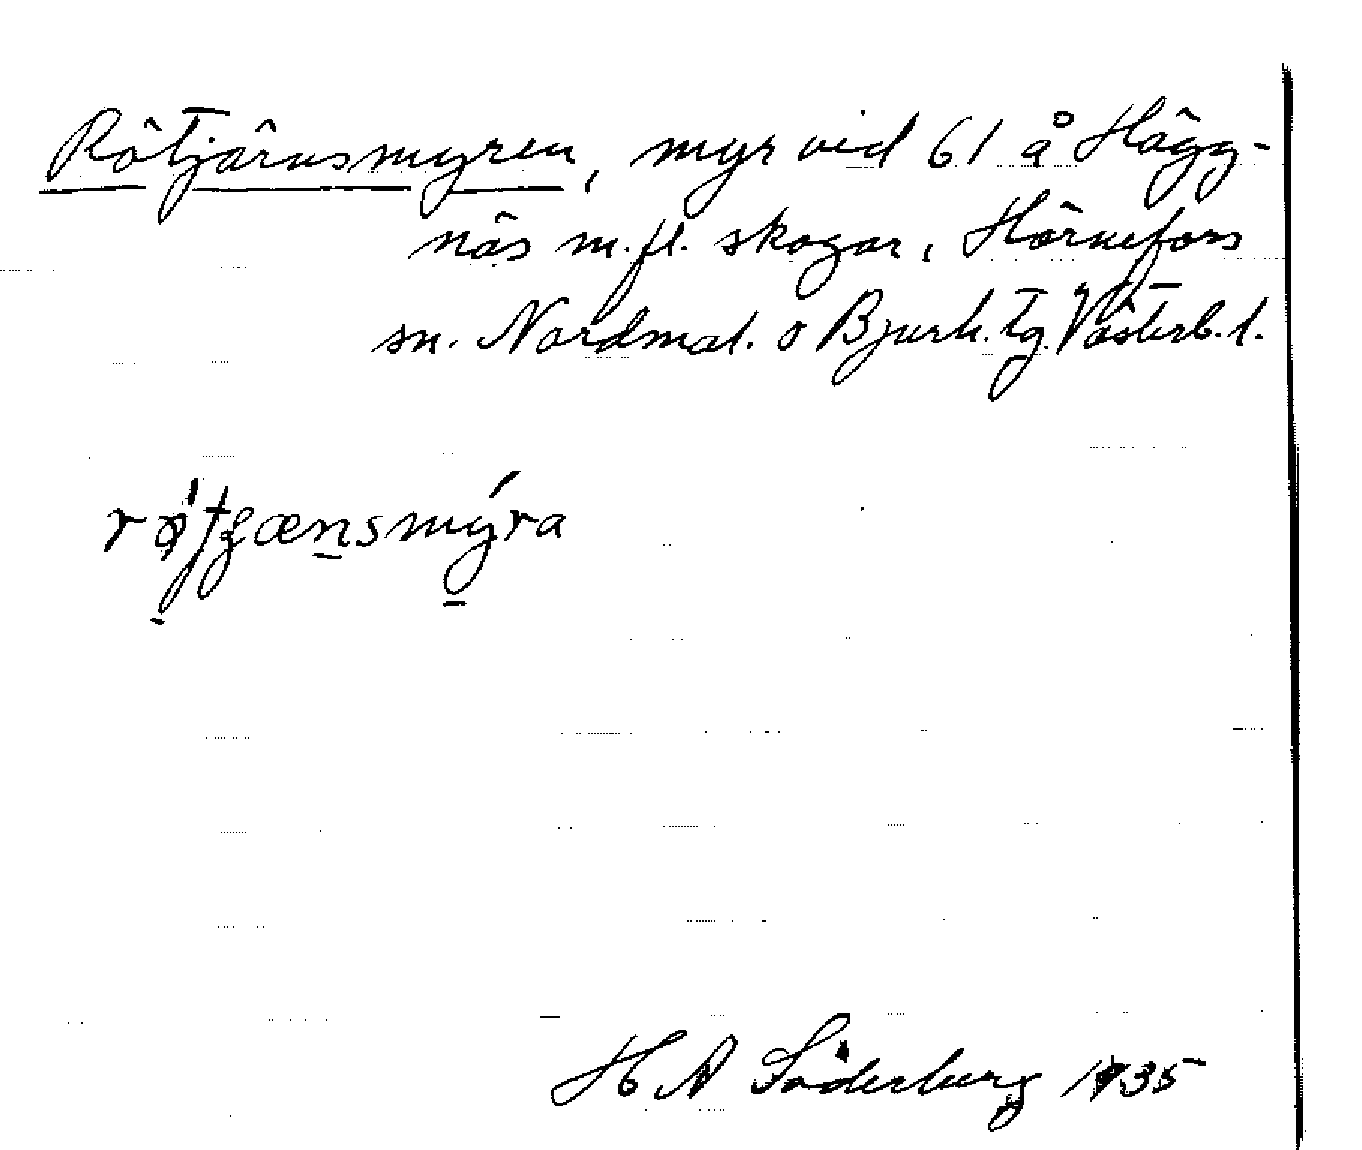 Rötjärnsmyren, myr vid 61 å Hägg-
näs m.fl. skogar, Hörnefors
sn. Nordmal. o Bjurh. tg. Västerb. l.
røtjænsmýra
H A Söderberg 1935